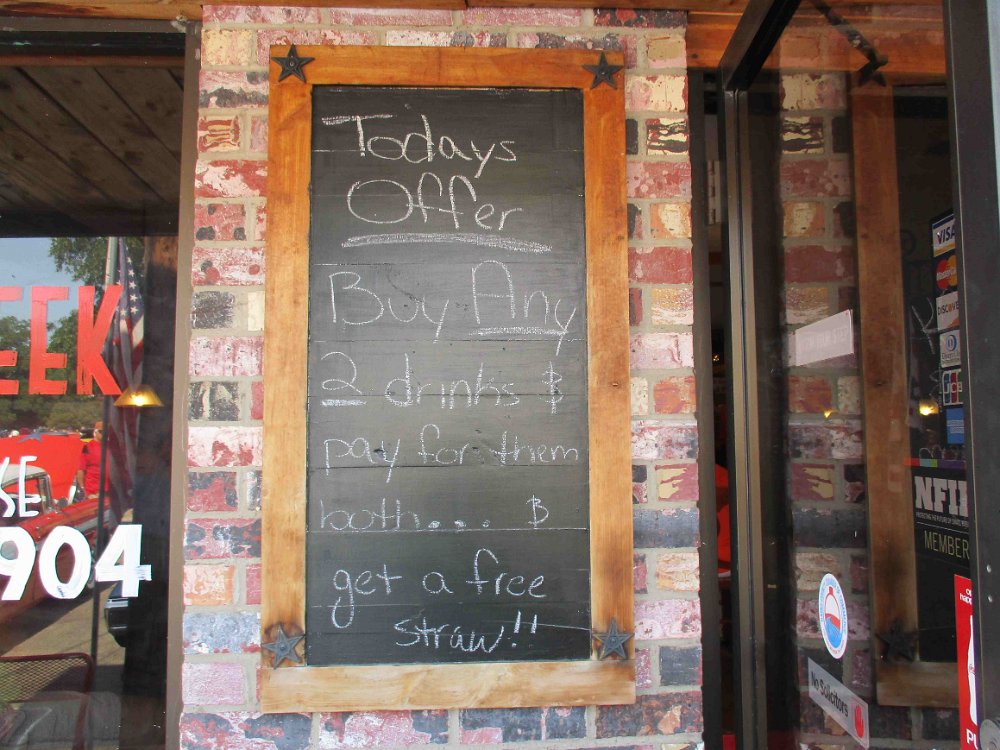 Todays
Offer
Buy Any
2 drinks &
pay for them
both... &
get a free
straw!!
EEK
SE
904
VISA
DISCOVER
JCB
MEMBER
No Solicitors